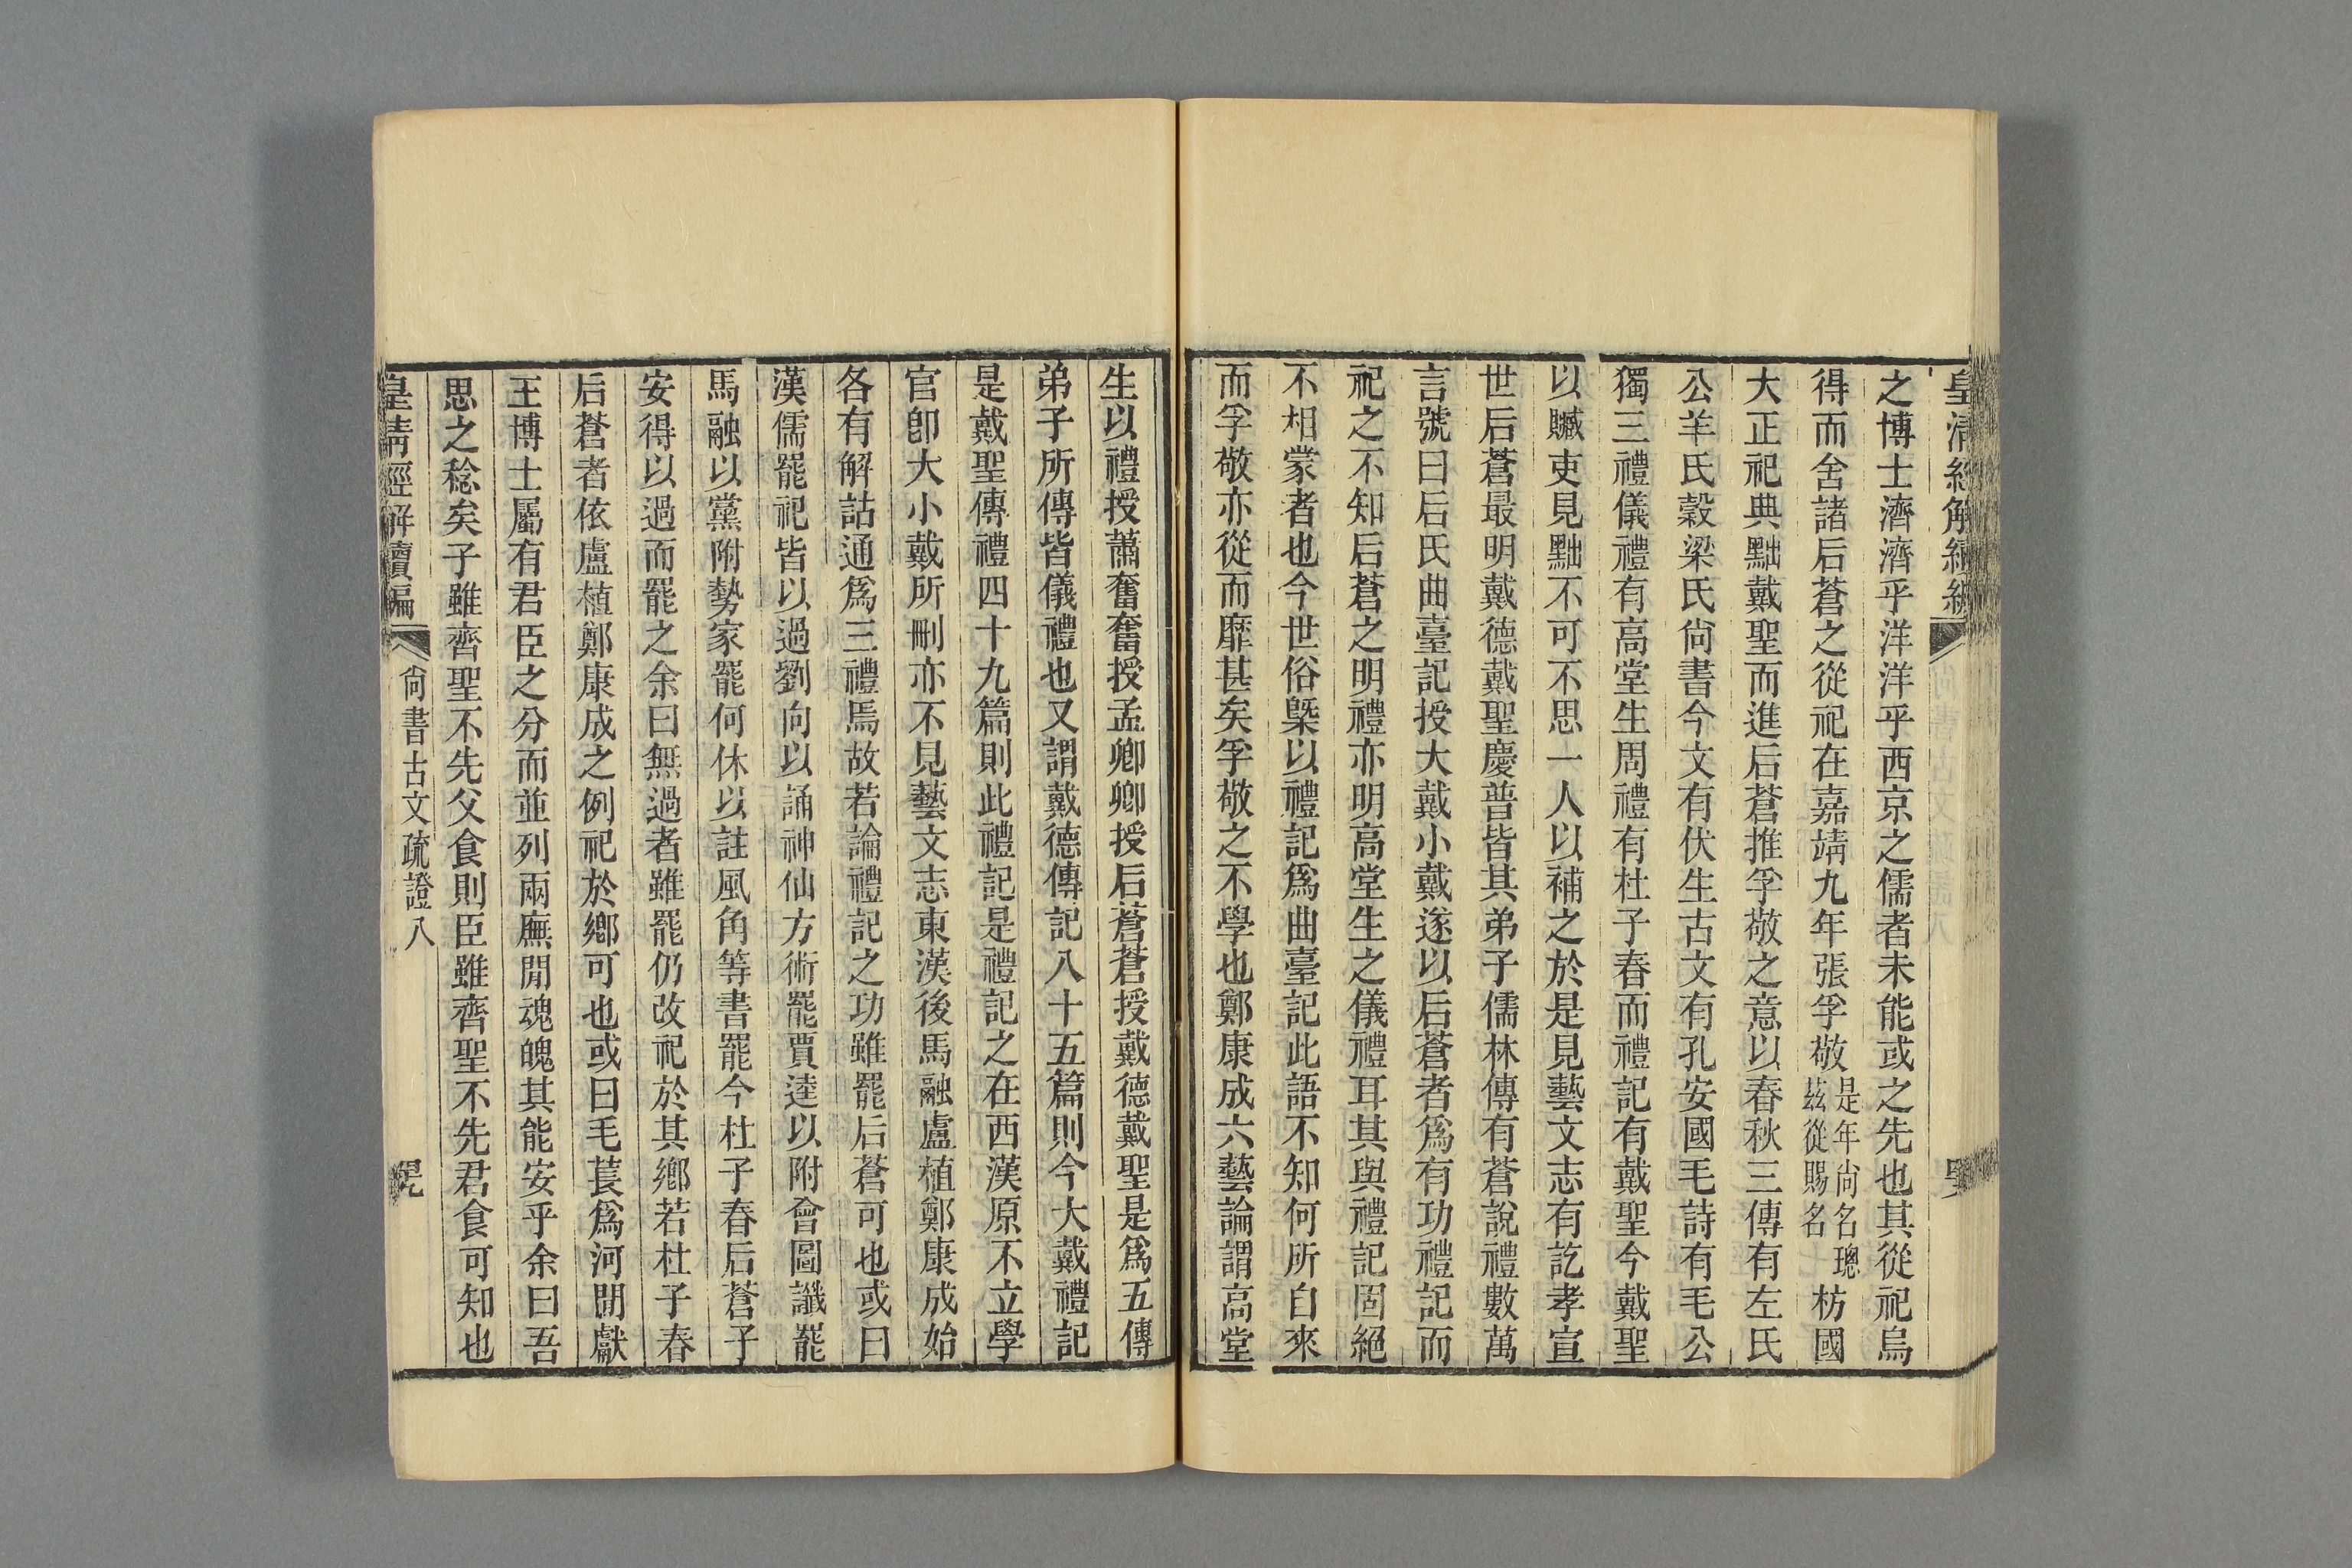 皇清經解續編
之博士濟濟乎洋洋乎西京之儒者未能或之先也其從祀烏
得而舍諸后蒼之從祀在嘉靖九年張孚敬是年尙名璁茲從賜名枋國
大正祀典黜戴聖而進后蒼推孚敬之意以春秋三傳有左氏
公羊氏穀梁氏尙書今文有伏生古文有孔安國毛詩有毛公
獨三禮儀禮有高堂生周禮有杜子春而禮記有戴聖今戴聖
以贓吏見黜不可不思一人以補之於是見藝文志有訖孝宣
世后蒼最明戴德戴聖慶普皆其弟子儒林傳有蒼說禮數萬
言號曰后氏曲臺記授大戴小戴遂以后蒼者爲有功禮記而
祀之不知后蒼之明禮亦明高堂生之儀禮耳其與禮記固絕
不相蒙者也今世俗槩以禮記爲曲臺記此語不知何所自來
而孚敬亦從而靡甚矣孚敬之不學也鄭康成六藝論謂高堂
生以禮授蕭奮奮授孟卿卿授后蒼蒼授戴德戴聖是爲五傳
弟子所傳皆儀禮也又謂戴德傳記八十五篇則今大戴禮記
是戴聖傳禮四十九篇則此禮記是禮記之在西漢原不立學
官卽大小戴所刪亦不見藝文志東漢後馬融盧植鄭康成始
各有解詁通爲三禮焉故若論禮記之功雖罷后蒼可也或曰
漢儒罷祀皆以過劉向以誦神仙方術罷賈逵以附會圖讖罷
馬融以黨附勢家罷何休以註風角等書罷今杜子春后蒼子
安得以過而罷之余曰無過者雖罷仍改祀於其鄉若杜子春
后蒼者依盧植鄭康成之例祀於鄉可也或曰毛萇爲河閒獻
王博士屬有君臣之分而並列兩廡閒魂魄其能安乎余曰吾
思之稔矣子雖齊聖不先父食則臣雖齊聖不先君食可知也
皇淸經解續編
尙書古文疏證八